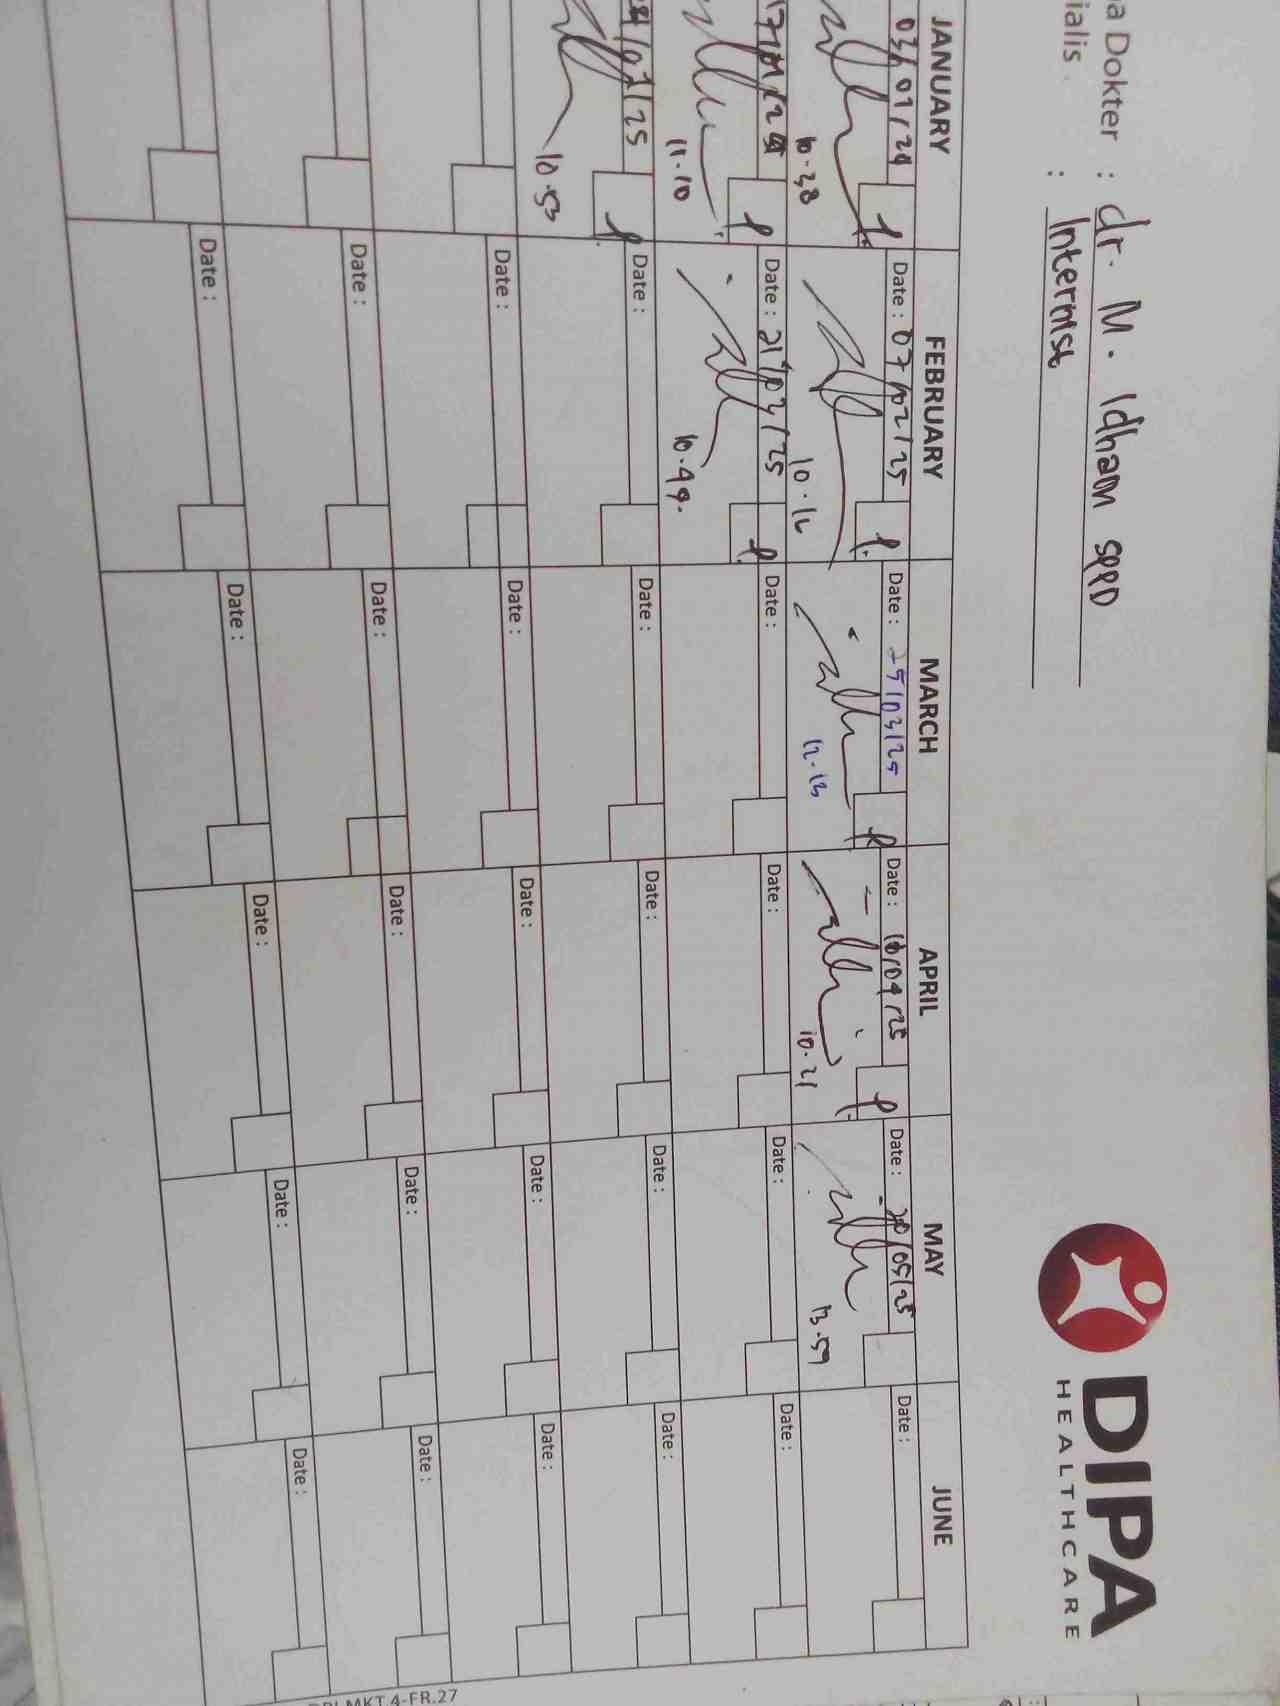 DIPA
HEALTHCARE
a Dokter : dr. M. Idham SPPD
ialis : Internist
JANUARY FEBRUARY MARCH APRIL MAY JUNE
03/01/24 Date : 07/02/25 Date : 25/03/25 Date : 16/04/25 Date : 20/05/25 Date :
10.38 10.16 12.13 10.21 13.59
17/01/25 Date : 21/03/25 Date : Date : Date : Date :
11.10 10.49.
/01/25 Date : Date : Date : Date : Date :
10.53
Date : Date : Date : Date : Date :
Date : Date : Date : Date : Date :
Date : Date : Date : Date : Date :
MKT.4-FR.27